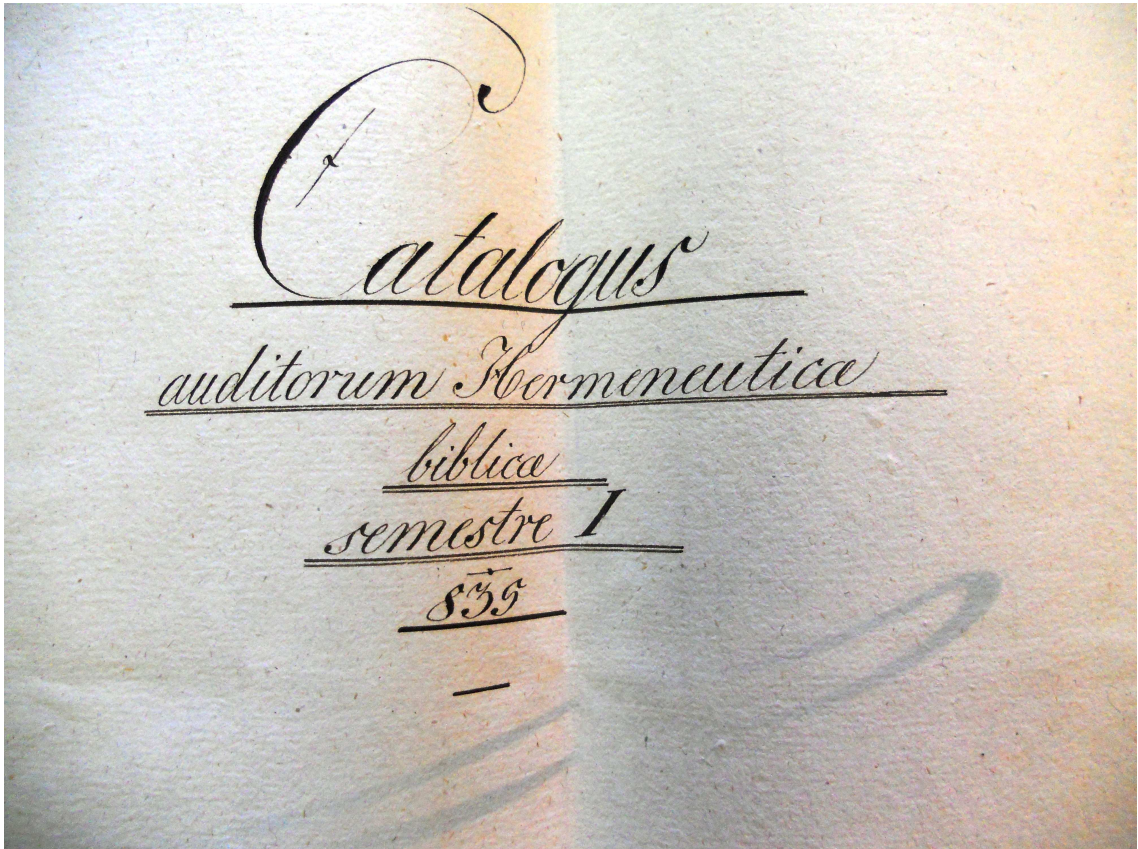 Catalogus
auditorum Hermeneuticæ
biblicæ
semestre I
835